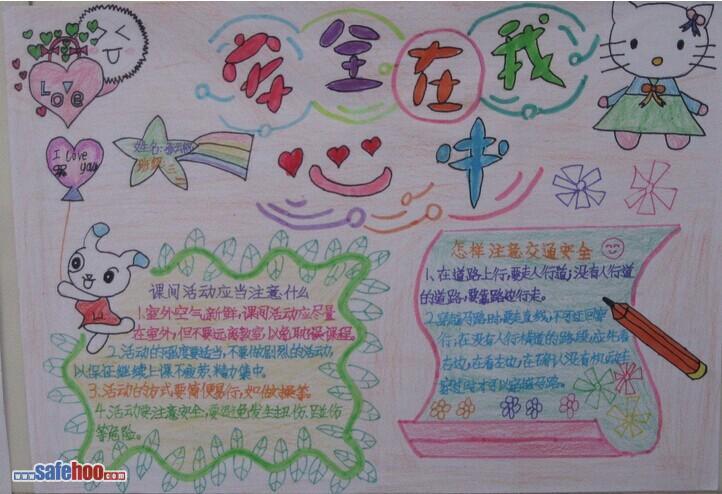 安全在我
心中
LOVE
I love
you
姓名:
班级:三二
课间活动应当注意什么
1.室外空气新鲜,课间活动应尽量
在室外,但不要远离教室,以免耽误课程。
2.活动的强度要适当,不要做剧烈的活动,
以保证继续上课不疲劳,精力集中。
3.活动的方式要简便易行,如做做操等。
4.活动要注意安全,要避免发生扭伤、跌伤
等危险。
怎样注意交通安全
1、在道路上行,要走人行道;没有人行道
的道路,要靠路边行走。
2.穿越马路时,要走直线,不可迂回穿
行,在没有人行横道的路段,应先看
右边,在看左边,在确认没有机动车
才可以穿越马路。
www.safehoo.com